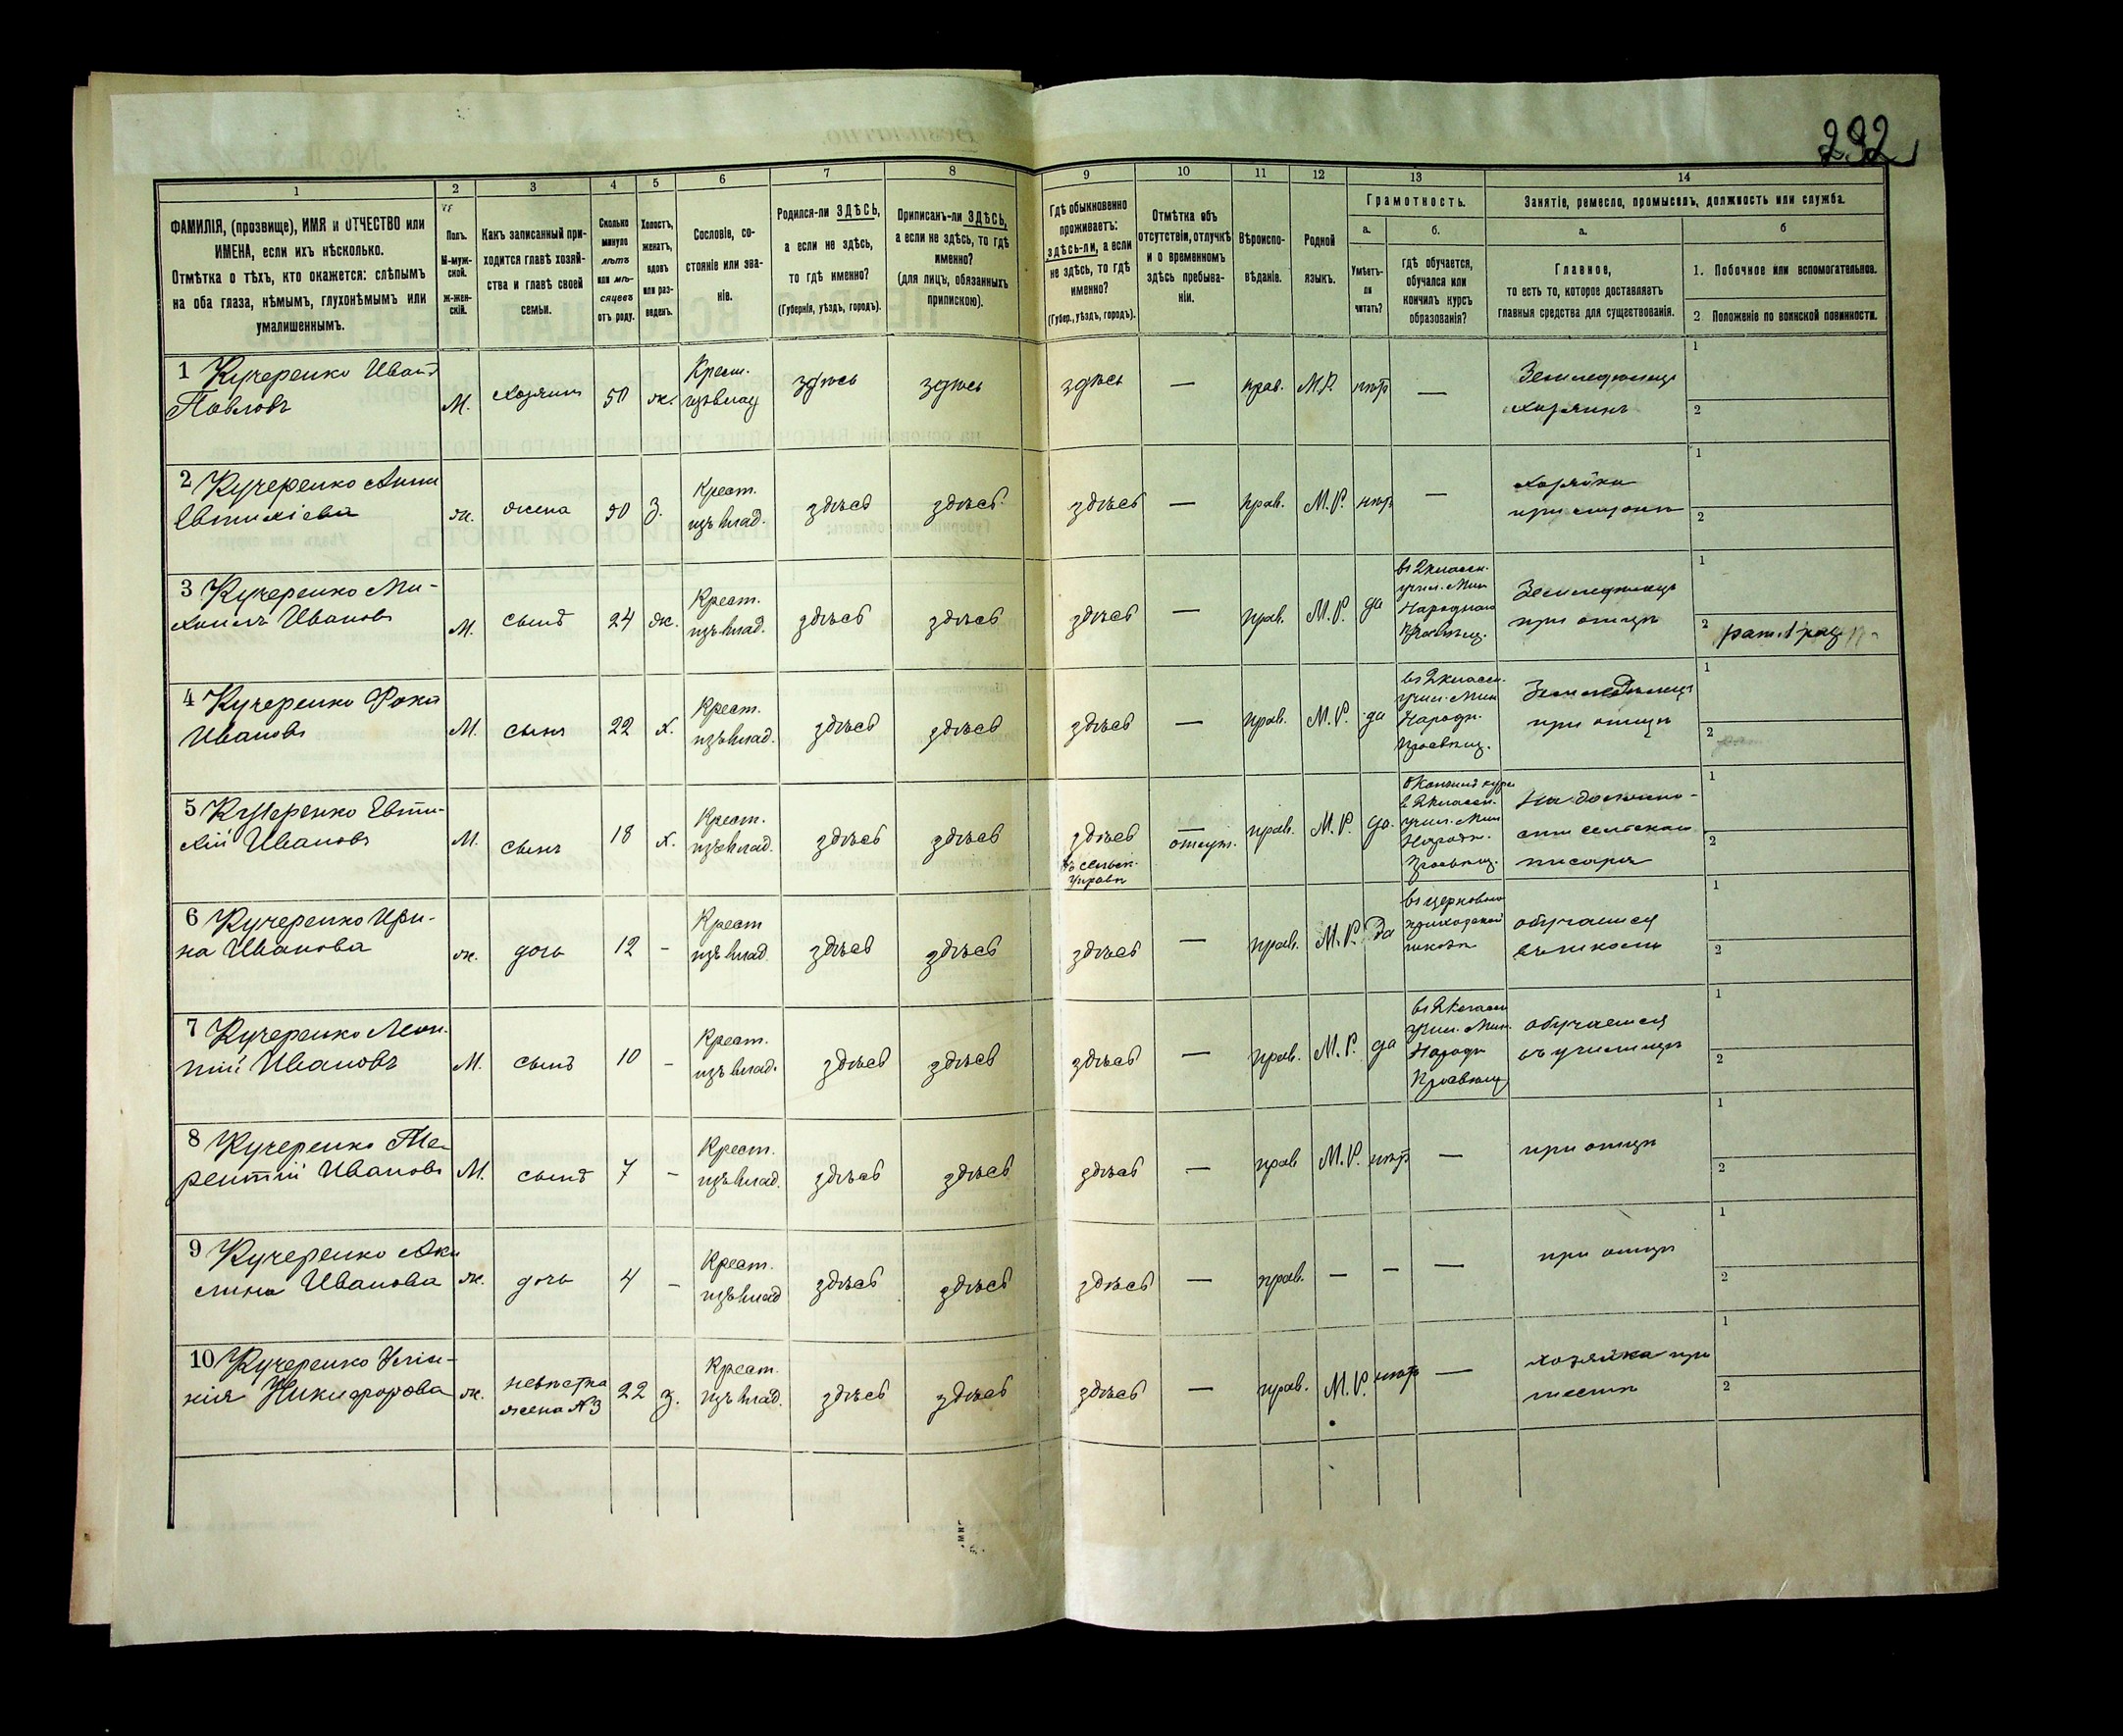 292
1
2
3
4
5
6
7
8
9
10
11
12
13
14
ФАМИЛІЯ, (прозвище), ИМЯ и ОТЧЕСТВО или
ИМЕНА, если ихъ нѣсколько.
Отмѣтка о тѣхъ, кто окажется: слѣпымъ
на оба глаза, нѣмымъ, глухонѣмымъ или
умалишеннымъ.
Полъ.
М-муж-
ской.
ж-жен-
скій.
Какъ записанный при-
ходится главѣ хозяй-
ства и главѣ своей
семьи.
Сколько
минуло
лѣтъ
или мѣ-
сяцевъ
отъ роду.
Холостъ,
женатъ,
вдовъ
или раз-
веденъ.
Сословіе, со-
стояніе или зва-
ніе.
Родился-ли ЗДѢСЬ,
а если не здѣсь,
то гдѣ именно?
(Губернія, уѣздъ, городъ).
Приписанъ-ли ЗДѢСЬ,
а если не здѣсь, то гдѣ
именно?
(для лицъ, обязанныхъ
припискою).
Гдѣ обыкновенно
проживаетъ:
здѣсь-ли, а если
не здѣсь, то гдѣ
именно?
(Губер., уѣздъ, городъ).
Отмѣтка объ
отсутствіи, отлучкѣ
и о временномъ
здѣсь пребыва-
ніи.
Вѣроиспо-
вѣданіе.
Родной
языкъ.
Грамотность.
а.
Умѣетъ-
ли
читать?
б.
гдѣ обучается,
обучался или
кончилъ курсъ
образованія?
Занятіе, ремесло, промыселъ, должность или служба.
а.
Главное,
то есть то, которое доставляетъ
главныя средства для существованія.
б
1. Побочное или вспомогательное.
2 Положеніе по воинской повинности.
1 Кучеренко Иванъ
Павловъ
М.
хозяинъ
50
ж.
Крест.
изъ влад
здѣсь
здѣсь
здѣсь
—
прав.
М.Р.
нѣтъ
—
Земледѣлецъ
хозяинъ
1
2
2 Кучеренко Анна
Евтихіева
ж.
жена
50
з.
Крест.
изъ влад.
здѣсь
здѣсь
здѣсь
—
прав.
М.Р.
нѣтъ
—
хозяйка
при мужѣ
1
2
3 Кучеренко Ми-
хаилъ Ивановъ
М.
сынъ
24
ж.
Крест.
изъ влад.
здѣсь
здѣсь
здѣсь
—
прав.
М.Р.
да
въ 2 классн.
учил. Мин
Народнаго
Просвѣщ.
Земледѣлецъ
при отцѣ
1
2 рат. 1 раз
4 Кучеренко Фока
Ивановъ
М.
сынъ
22
х.
Крест.
изъ влад.
здѣсь
здѣсь
здѣсь
—
прав.
М.Р.
да
въ 2 классн.
учил. Мин
Народн.
Просвѣщ.
Земледѣлецъ
при отцѣ
1
2
5 Кучеренко Евти-
хій Ивановъ
М.
сынъ
18
х.
Крест.
изъ влад.
здѣсь
здѣсь
здѣсь
въ сельск.
Управѣ
—
отсут.
прав.
М.Р.
да.
окончилъ курсъ
в 2 классн.
учил. Мин
Народн.
Просвѣщ.
На должно-
сти сельскаго
писаря
1
2
6 Кучеренко Ири-
на Иванова
ж.
дочь
12
-
Крест
изъ влад.
здѣсь
здѣсь
здѣсь
—
прав.
М.Р.
да
въ церковно
приходской
школѣ
обучается
въ школѣ
1
2
7 Кучеренко Леон-
тій Ивановъ
М.
сынъ
10
-
Крест.
изъ влад.
здѣсь
здѣсь
здѣсь
—
прав.
М.Р.
да
въ 2 классн
учил. Мин.
Народн
Просвѣщ
обучается
въ училищѣ
1
2
8 Кучеренко Те-
рентій Ивановъ
М.
сынъ
7
-
Крест.
изъ влад.
здѣсь
здѣсь
здѣсь
—
прав
М.Р.
нѣтъ
—
при отцѣ
1
2
9 Кучеренко Аку
лина Иванова
ж.
дочь
4
-
Крест.
изъ влад
здѣсь
здѣсь
здѣсь
—
прав.
—
-
—
при отцѣ
1
2
10 Кучеренко Уліа-
нія Никифорова
ж.
невѣстка
жена №3
22
з.
Крест.
изъ влад.
здѣсь
здѣсь
здѣсь
—
прав.
М.Р.
нѣтъ
—
хозяйка при
1
2